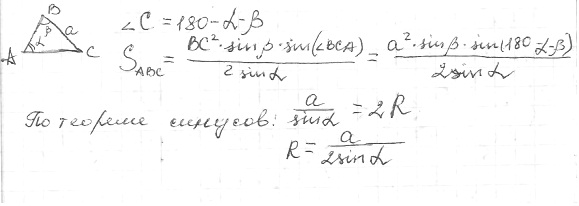 B
β
a
A
α
C
∠C = 180-α-β
S_ABC = BC²·sinβ·sin(∠BCA) / 2 sinα = a²·sinβ·sin(180-α-β) / 2sinα
По теореме синусов: a / sinα = 2R
R = a / 2sinα